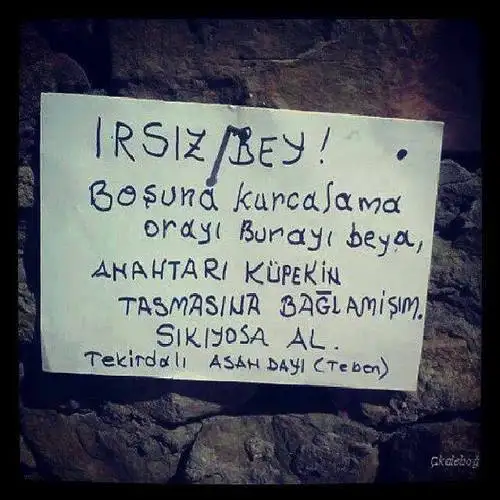 IRSIZ BEY!
Boşuna kurcalama
orayı Burayı beya,
ANAHTARI KÜPEKİN
TASMASINA BAĞLAMİŞIM.
SIKIYOSA AL.
Tekirdalı ASAN DAYI (Teben)